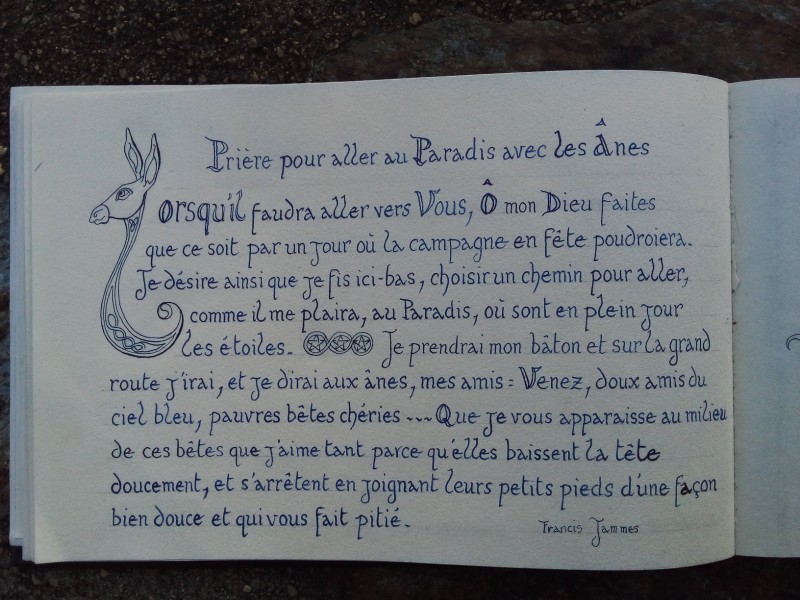 Prière pour aller au Paradis avec les Ânes
Lorsqu'il faudra aller vers Vous, Ô mon Dieu faites
que ce soit par un jour où la campagne en fête poudroiera.
Je désire ainsi que je fis ici-bas, choisir un chemin pour aller,
comme il me plaira, au Paradis, où sont en plein jour
les étoiles. Je prendrai mon bâton et sur la grand
route j'irai, et je dirai aux ânes, mes amis : Venez, doux amis du
ciel bleu, pauvres bêtes chéries ~~~ Que je vous apparaisse au milieu
de ces bêtes que j'aime tant parce qu'elles baissent la tête
doucement, et s'arrêtent en joignant leurs petits pieds d'une façon
bien douce et qui vous fait pitié.
Francis Jammes